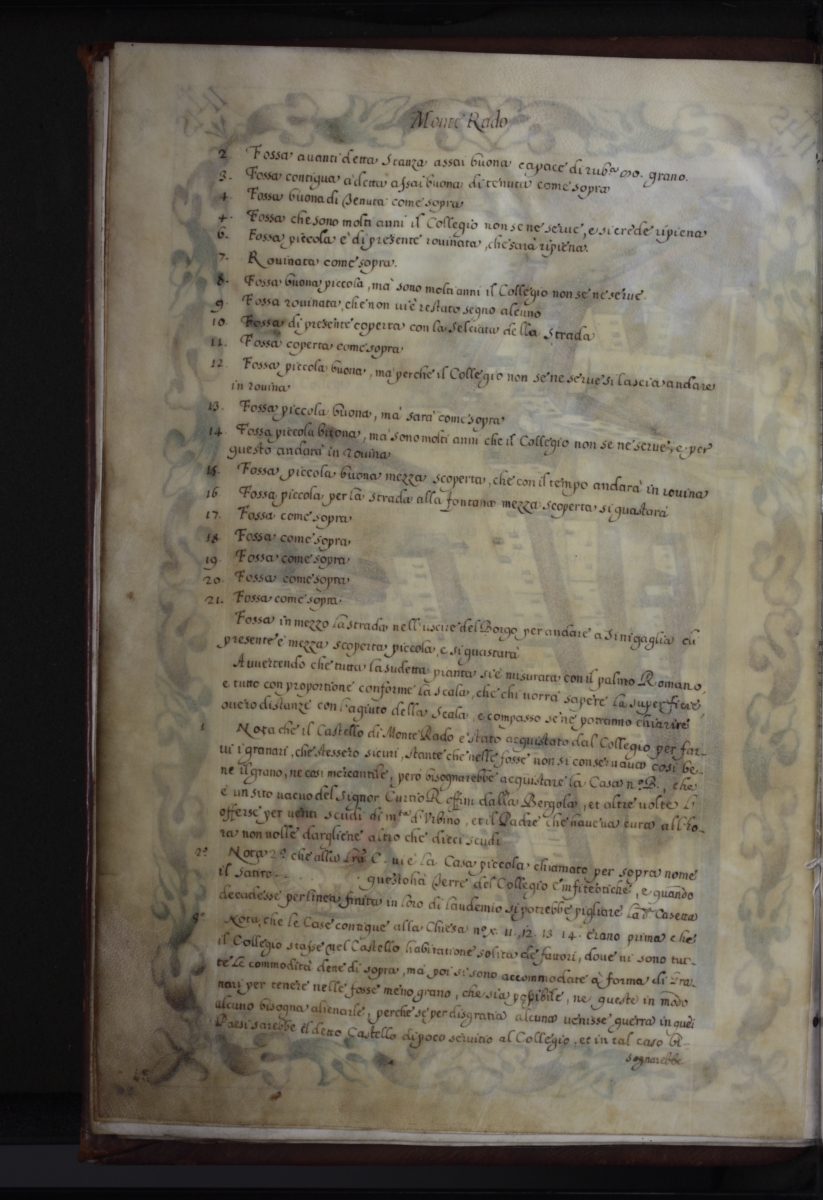 Monte Rado
2. Fossa auanti detta Stanza assai buona capace di rub.ᵃ grano.
3. Fossa contigua à detta assai buona di tenuta come sopra
4. Fossa buona di tenuta come sopra
4. Fossa che sono molti anni il Collegio non se ne serue, e si crede ripiena
6. Fossa piccola è di presente rouinata, che sarà ripiena.
7. Rouinata come sopra.
8. Fossa buona piccola, mà sono molti anni il Collegio non se ne serue
9. Fossa rouinata, che non ui è restato segno alcuno
10. Fossa di presente coperta con la selciata della Strada
11. Fossa coperta come sopra
12. Fossa piccola buona, ma perche il Collegio non se ne serue si lascia andare
in rouina
13. Fossa piccola buona, mà sarà come sopra
14. Fossa piccola buona, mà sono molti anni che il Collegio non se ne serue, e per
questo andarà in rouina
15. Fossa piccola buona mezza scoperta, che con il tempo andarà in rouina
16. Fossa piccola per la strada alla fontana mezza scoperta si guastarà
17. Fossa come sopra
18. Fossa come sopra
19. Fossa come sopra
20. Fossa come sopra
21. Fossa come sopra
Fossa in mezzo la strada nell'uscire del Borgo per andare a Sinigaglia di
presente è mezza scoperta piccola, e si guastarà
Auuertendo che tutta la sudetta pianta si è misurata con il palmo Romano,
e tutto con proportione conforme la scala, che chi uorrà sapere la superficie,
ouero distanze con l'agiuto della Scala, e compasso se ne potranno chiarire
1 Nota che il Castello di Monte Rado è stato acquistato dal Collegio per far-
ui i granari, che stessero sicuri, stante che nelle fosse non si conseruaua così be-
ne il grano, ne così mercantile, però bisognarebbe acquistare la Casa n.º B., che
è un sito uacuo del Signor Curtio Reffini dalla Bergola, et altre uolte li
offerse per uenti scudi di m.ᵗᵃ d'Vrbino, et il Padre che haueua cura all'ho-
ra non uolle dargliene altro che dieci scudi
2.º Nota 2.º che alla Lrã C. ui è la Casa piccola chiamato per sopra nome
il Santo . . . . . . . questo hà Terre del Collegio Enfiteotiche, e quando
decadesse per linea finita in loro di laudemio si potrebbe pigliare la d.ᵃ Casetta
3.º Nota, che le Case contigue alla Chiesa n.º x. 11. 12. 13. 14. erano prima che
il Collegio stasse nel Castello habitatione solita de fattori, doue ui sono tut-
te le commodità dette di sopra, mà poi si sono accommodate à forma di Gra-
nari per tenere nelle fosse meno grano, che sia possibile, ne queste in modo
alcuno bisogna alienarle, perche se per disgratia alcuna uenisse guerra in quei
Paesi sarebbe il detto Castello di poco seruitio al Collegio, et in tal caso bi-
sognarebbe